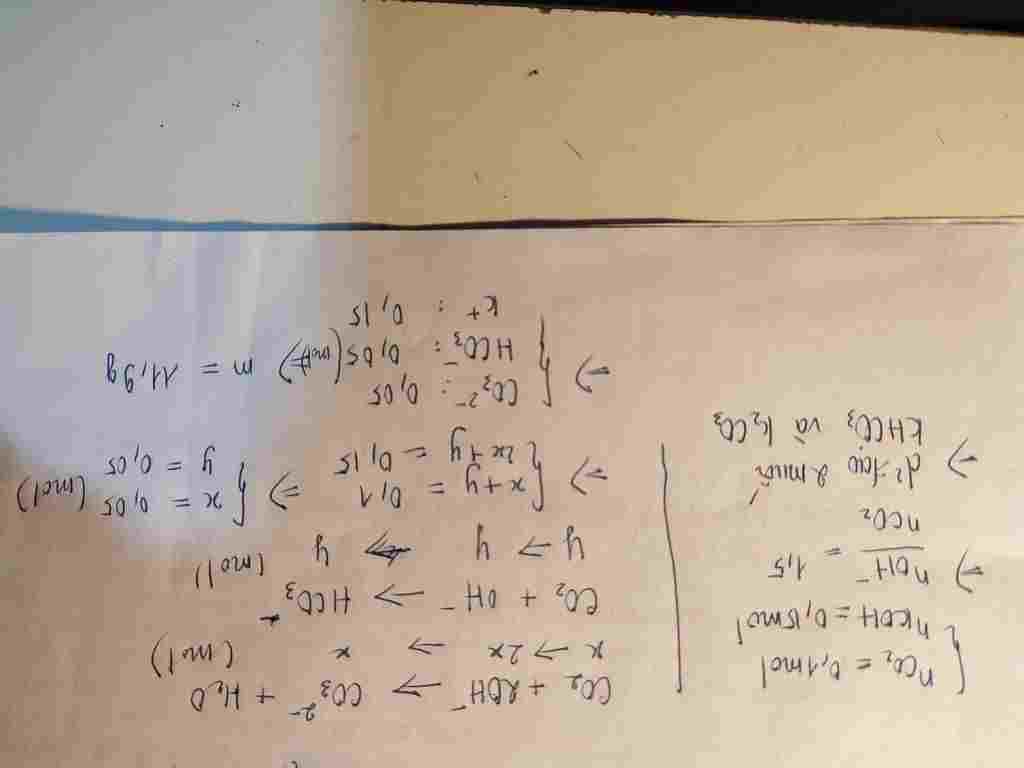 { nCO₂ = 0,1 mol
{ nKOH = 0,15 mol
=> nOH⁻ / nCO₂ = 1,5
=> d² tạo 2 muối
KHCO₃ và K₂CO₃
CO₂ + 2OH⁻ → CO₃²⁻ + H₂O
x → 2x → x (mol)
CO₂ + OH⁻ → HCO₃⁻
y → y → y (mol)
=> { x+y = 0,1 => { x = 0,05
{ 2x+y = 0,15 { y = 0,05 (mol)
=> { CO₃²⁻ : 0,05
{ HCO₃⁻ : 0,05 (mol) => m = 11,9g
{ K⁺ : 0,15